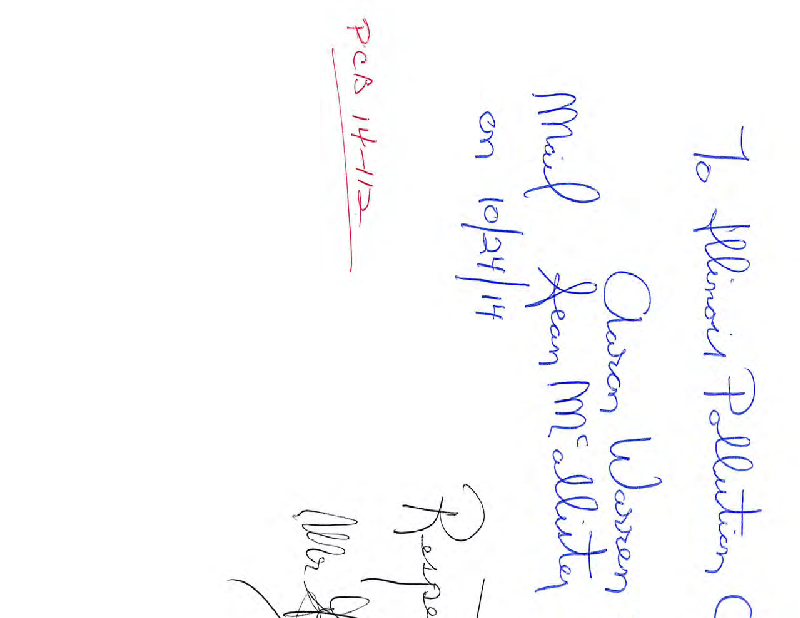 To Illinois Pollution C
Aaron Warren
Mail Sean McAllister
on 10/24/14
PCB 14-112
Respe
Mr